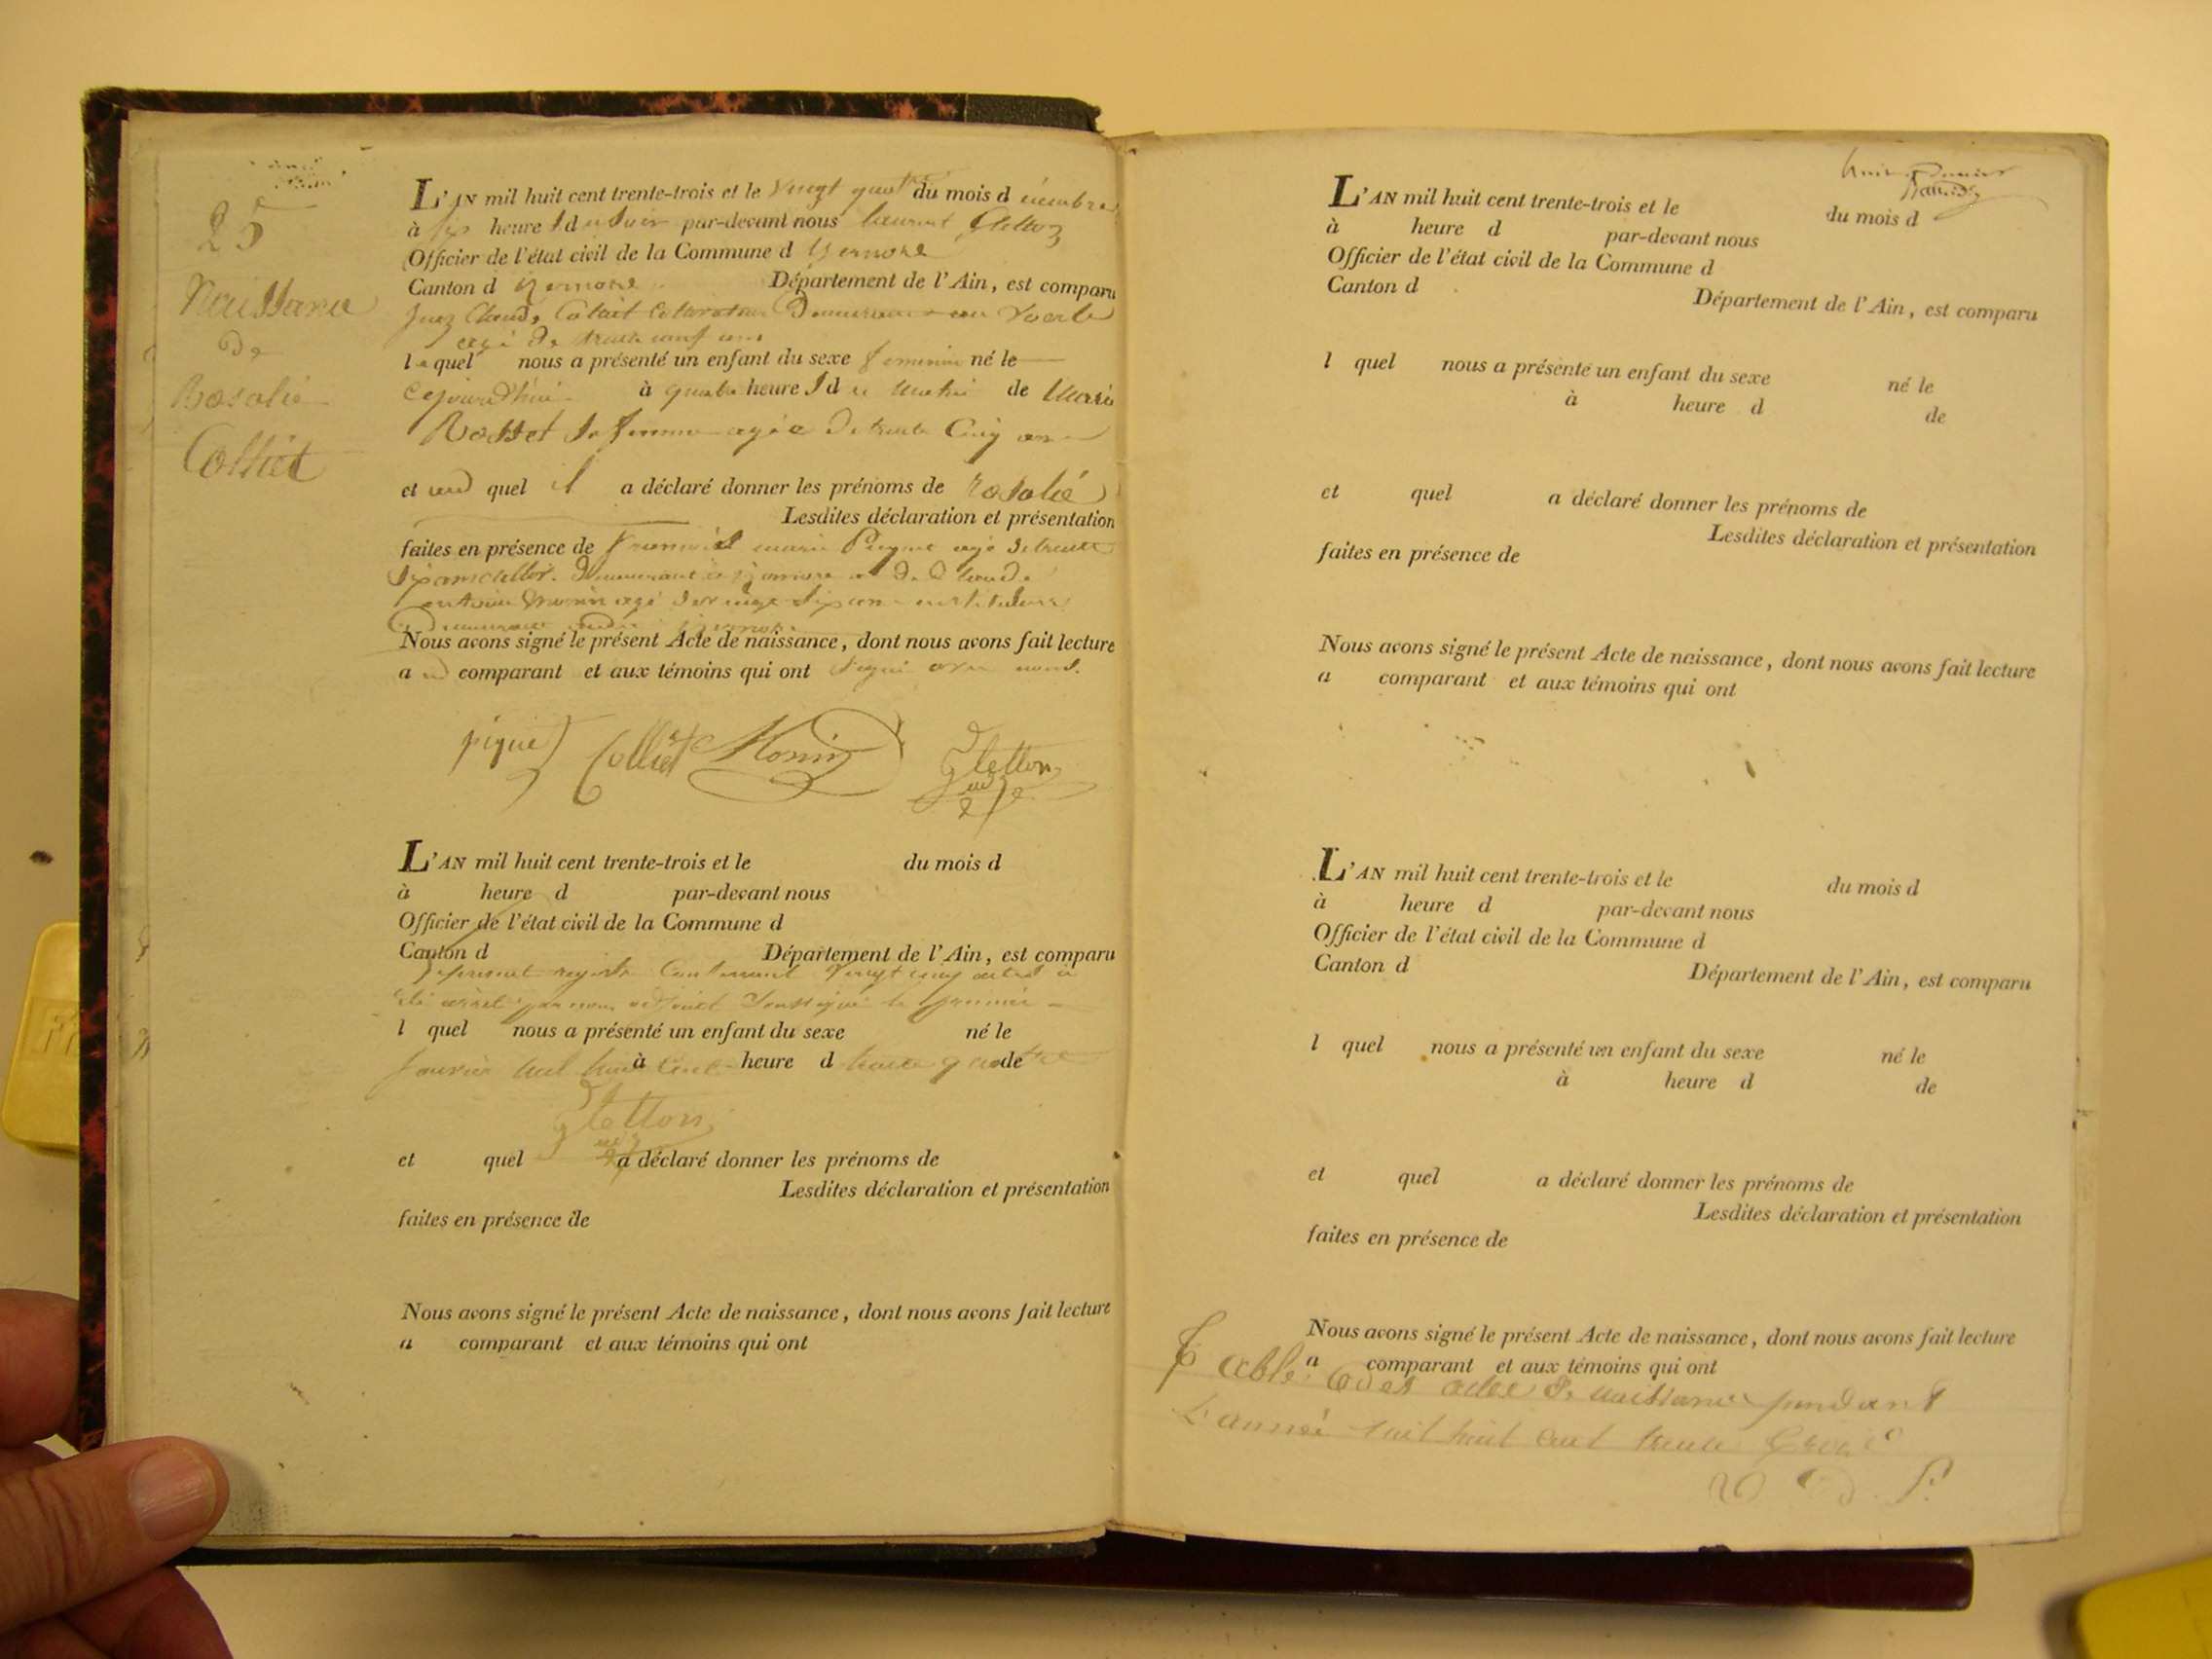 25
Naissance
de
Rosalie
Colliet
L'AN mil huit cent trente-trois et le vingt quat du mois d écembre
à six heure s d u soir par-devant nous laurent Gletton
Officier de l'état civil de la Commune d'izernore
Canton d'izernore Département de l'Ain, est comparu
Claude Colliet
agé de trente neuf ans
le quel nous a présenté un enfant du sexe feminin né le
cejourd'hui à quatre heure s d u matin de Marie
Rosset sa femme agée de trente Cinq ans
et au quel il a déclaré donner les prénoms de rosalie
Lesdites déclaration et présentation
faites en présence de françois marie Piquet agé de trente
six ans demeurant à izernore et de Claude
antoine Monin agé de vingt six ans instituteur
demeurant izernore
Nous avons signé le présent Acte de naissance, dont nous avons fait lecture
au comparant et aux témoins qui ont signé avec nous.
piquet Colliet Monin Gletton
L'AN mil huit cent trente-trois et le du mois d
à heure d par-devant nous
Officier de l'état civil de la Commune d
Canton d Département de l'Ain, est comparu
Le present registre Contenant vingt cinq actes a
été arreté par nous adjoint soussigné le premier
l quel nous a présenté un enfant du sexe né le
janvier mil huit Cent trente quatre
à heure d de
Gletton
et quel a déclaré donner les prénoms de
Lesdites déclaration et présentation
faites en présence de
Nous avons signé le présent Acte de naissance, dont nous avons fait lecture
a comparant et aux témoins qui ont
L'AN mil huit cent trente-trois et le du mois d
à heure d par-devant nous
Officier de l'état civil de la Commune d
Canton d
Département de l'Ain, est comparu
l quel nous a présenté un enfant du sexe né le
à heure d de
et quel a déclaré donner les prénoms de
Lesdites déclaration et présentation
faites en présence de
Nous avons signé le présent Acte de naissance, dont nous avons fait lecture
a comparant et aux témoins qui ont
L'AN mil huit cent trente-trois et le du mois d
à heure d par-devant nous
Officier de l'état civil de la Commune d
Canton d
Département de l'Ain, est comparu
l quel nous a présenté un enfant du sexe né le
à heure d de
et quel a déclaré donner les prénoms de
Lesdites déclaration et présentation
faites en présence de
Nous avons signé le présent Acte de naissance, dont nous avons fait lecture
a comparant et aux témoins qui ont
Table des actes de naissance pendant
L'année mil huit cent trente trois